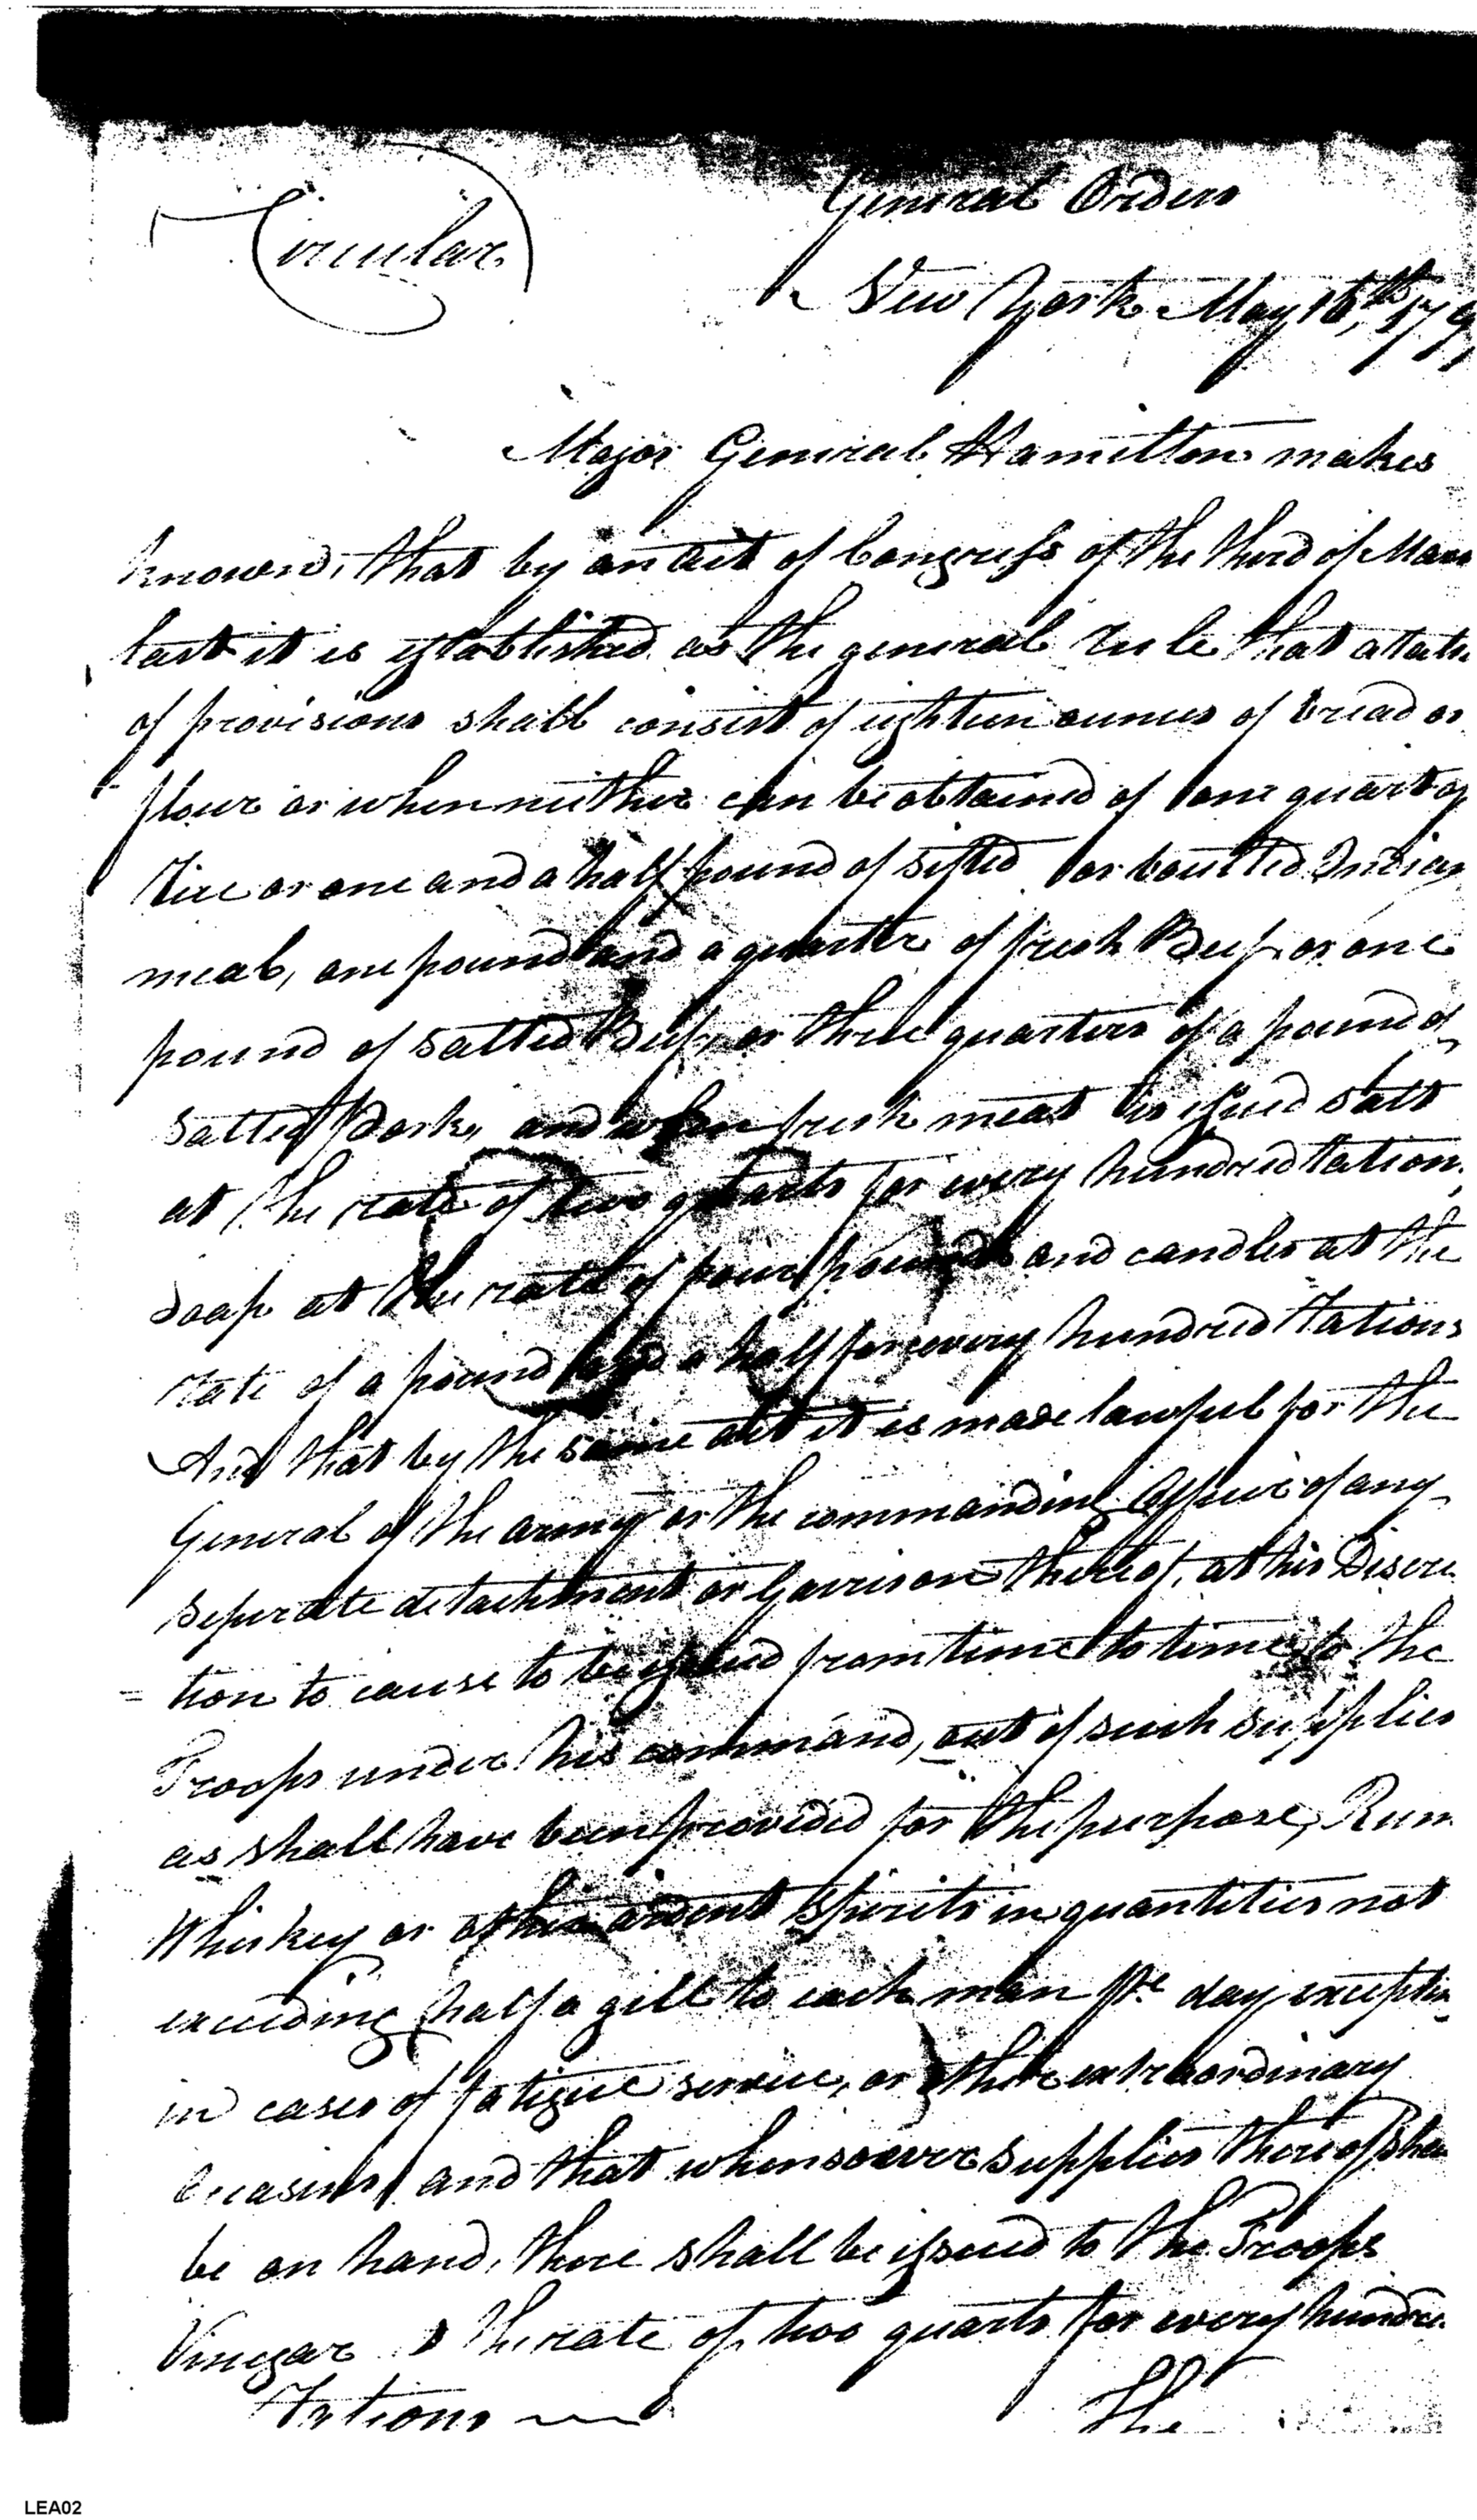 Circular
General Orders
New York May 16th, 179
Major General Hamilton makes
known, that by an act of Congress of the third of Mar
last it is established as the general rule that a ratio
of provisions shall consist of eighteen ounces of bread or
flour or when neither can be obtained of one quart of
rice or one and a half pound of sifted or boulted Indian
meal, one pound and a quarter of fresh Beef or one
pound of salted Beef, or three quarters of a pound of
salted Pork, and when fresh meat is issued salt
at the rate of two quarts for every hundred ration
soap at the rate of four pounds and candles at the
rate of a pound and a half for every hundred rations
And that by the same act it is made lawful for the
General of the army or the commanding Officer of any
seperate detachment or Garrison thereof, at his Discre
= tion to cause to be issued from time to time to the
Troops under his command, out of such supplies
as shall have been provided for the purpose, Rum
Whiskey or other ardent spirits in quantities not
exceeding half a gill to each man pr day, excepting
in cases of fatigue service, or other extraordinary
occasions and that whensoever supplies thereof shall
be on hand, there shall be issued to the Troops
Vinegar the rate of two quarts for every hundre
rations
The
LEA02